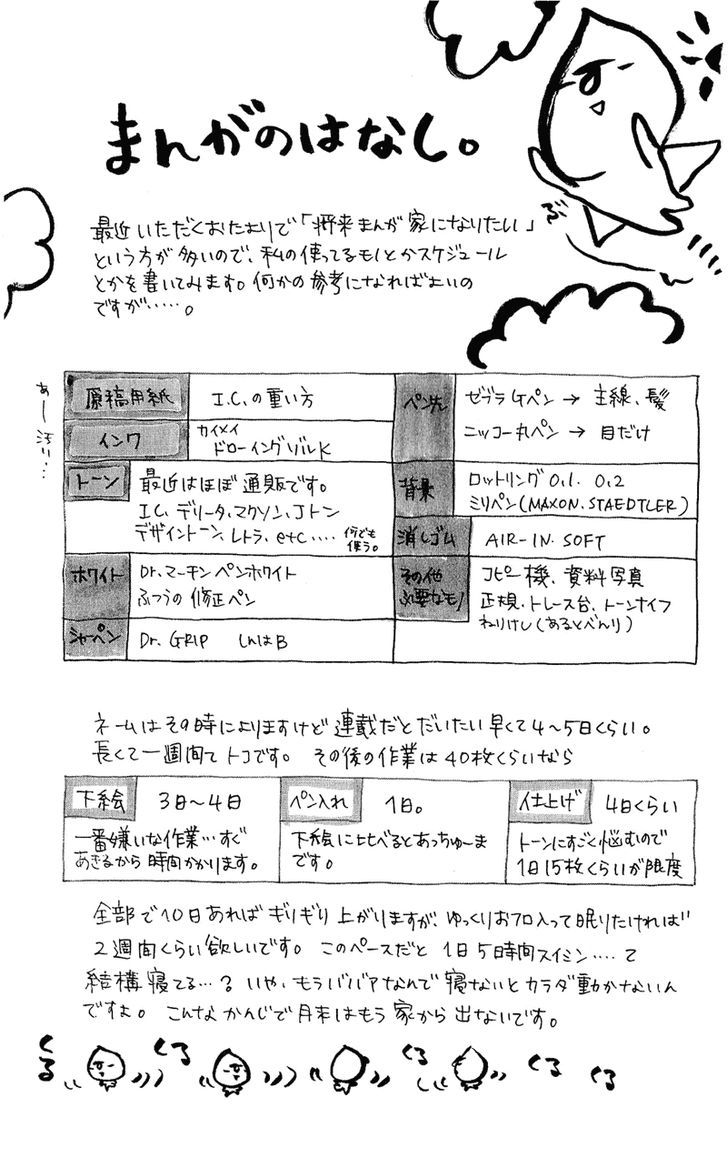 まんがのはなし。
最近いただくおたよりで「将来まんが家になりたい」
という方が多いので、私の使ってるモノとかスケジュール
とかを書いてみます。何かの参考になればよいの
ですが‥‥。
あー汚い…
原稿用紙 I.C.の重い方
インク カイメイ
ドローイングゾルK
トーン 最近はほぼ通販です。
I.C. デリータ、マクソン、Jトン
デザイントーン、レトラ、etc‥‥ 何でも
使う。
ホワイト Dr.マーチンペンホワイト
ふつうの修正ペン
シャーペン Dr. GRIP しんはB
ペン先 ゼブラGペン → 主線、髪
ニッコー丸ペン → 目だけ
背景 ロットリング0.1. 0.2
ミリペン(MAXON. STAEDTLER)
消しゴム AIR-IN SOFT
その他
必要なモノ コピー機、資料写真
定規、トレース台、トーンナイフ
ねりけし(あるとべんり)
ネームはその時によりますけど連載だとだいたい早くて4〜5日くらい。
長くて一週間てトコです。 その後の作業は40枚くらいなら
下絵 3日〜4日
一番嫌いな作業…すぐ
あきるから時間かかります。
ペン入れ 1日。
下絵に比べるとあっちゅーま
です。
仕上げ 4日くらい
トーンにすごく悩むので
1日15枚くらいが限度
全部で10日あればギリギリ上がりますが、ゆっくりおフロ入って眠りたければ
2週間くらい欲しいです。 このペースだと 1日5時間スイミン‥‥て
結構寝てる…? いや、もうババアなんで寝ないとカラダ動かないん
ですよ。 こんなかんじで月末はもう家から出ないです。
くる くる くる くる くる